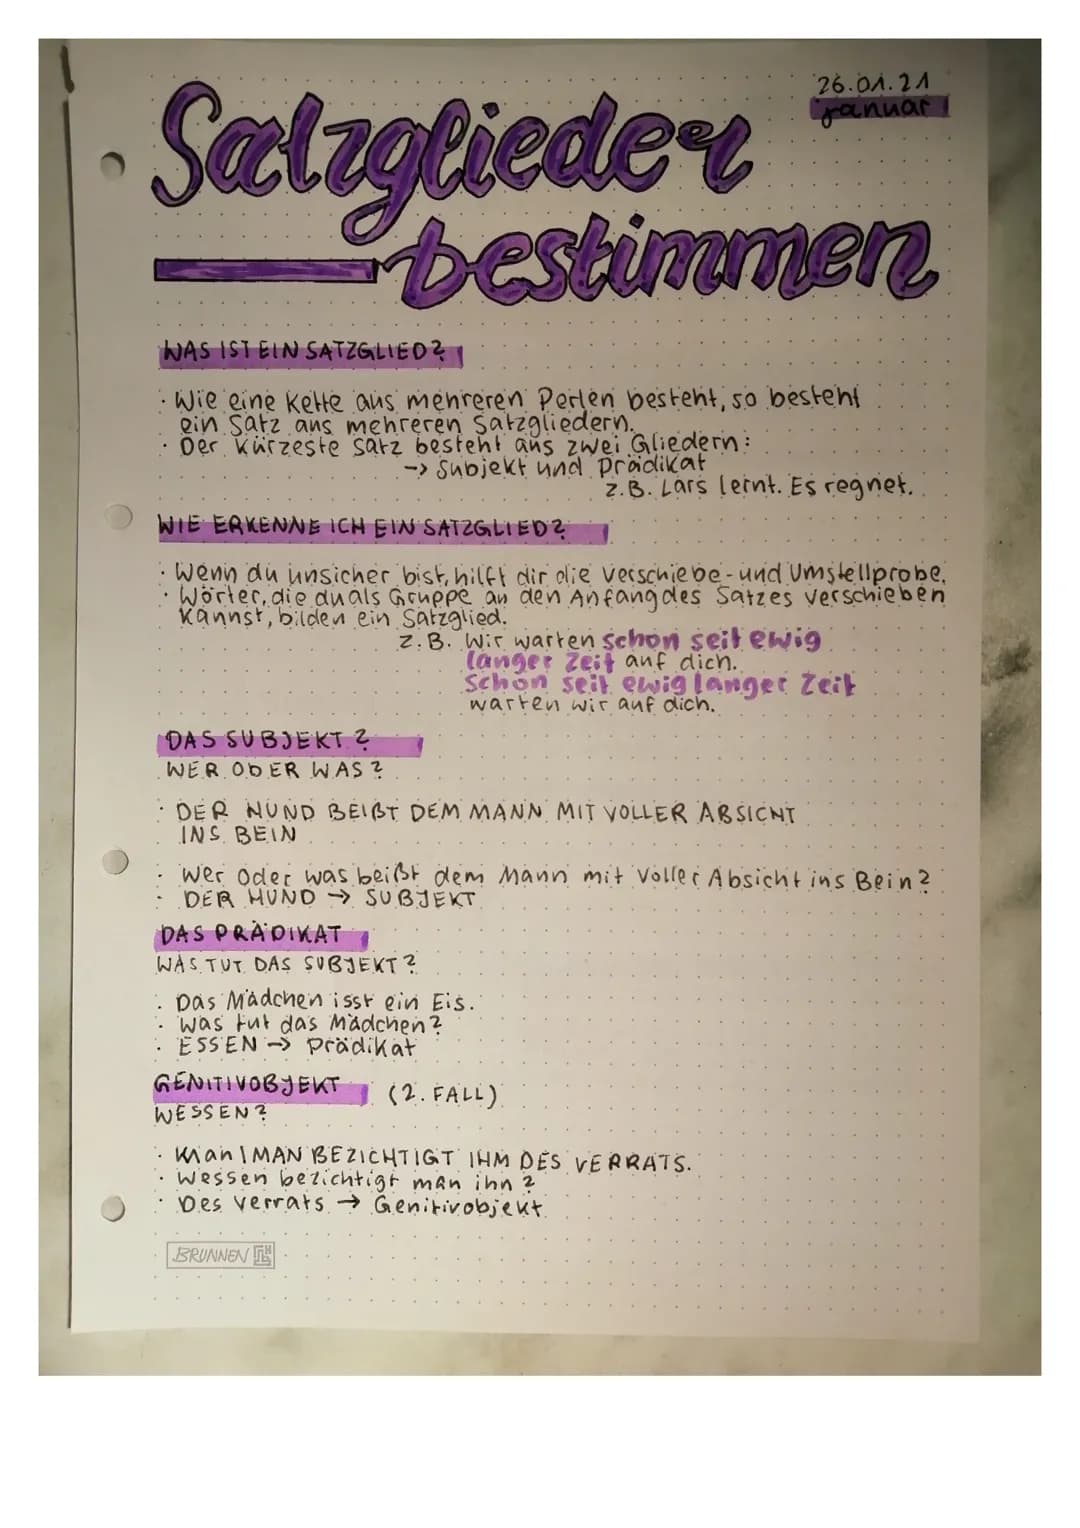 26.01.21
Januar
Satzglieder
bestimmen
WAS IST EIN SATZGLIED?
· Wie eine Kette aus mehreren Perlen besteht, so besteht
ein Satz aus mehreren Satzgliedern.
· Der kürzeste Satz besteht aus zwei Gliedern:
-> Subjekt und Prädikat
z.B. Lars lernt. Es regnet.
WIE ERKENNE ICH EIN SATZGLIED?
· Wenn du unsicher bist, hilft dir die Verschiebe- und Umstellprobe.
· Wörter, die du als Gruppe an den Anfang des Satzes verschieben
kannst, bilden ein Satzglied.
z.B. Wir warten schon seit ewig
langer Zeit auf dich.
Schon seit ewig langer Zeit
warten wir auf dich.
DAS SUBJEKT ?
WER ODER WAS ?
· DER HUND BEIßT DEM MANN MIT VOLLER ABSICHT
INS BEIN
· Wer oder was beißt dem Mann mit voller Absicht ins Bein?
· DER HUND → SUBJEKT
DAS PRÄDIKAT
WAS TUT DAS SUBJEKT?
· Das Mädchen isst ein Eis.
· Was tut das Mädchen?
· ESSEN → Prädikat
GENITIVOBJEKT (2. FALL)
WESSEN?
· Man I MAN BEZICHTIGT IHM DES VERRATS.
· Wessen bezichtigt man ihn?
· Des Verrats → Genitivobjekt
BRUNNEN